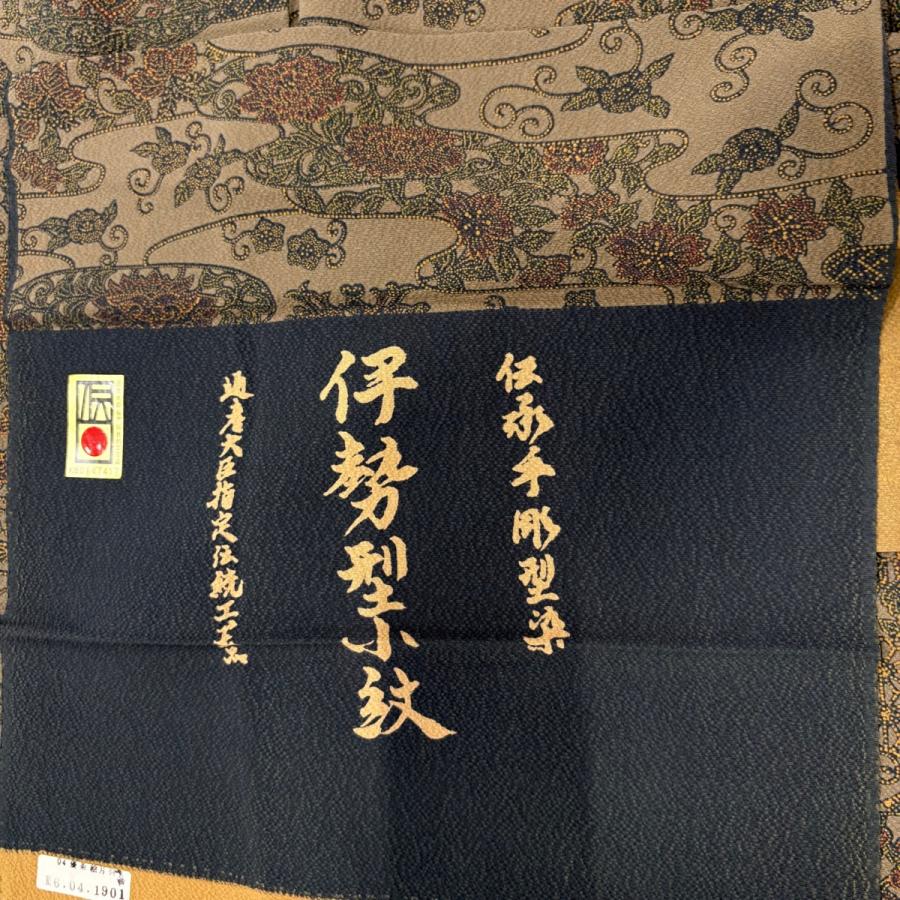 伝承手彫型染
伊勢型小紋
通産大臣指定伝統工芸品
伝
E6.04.1901